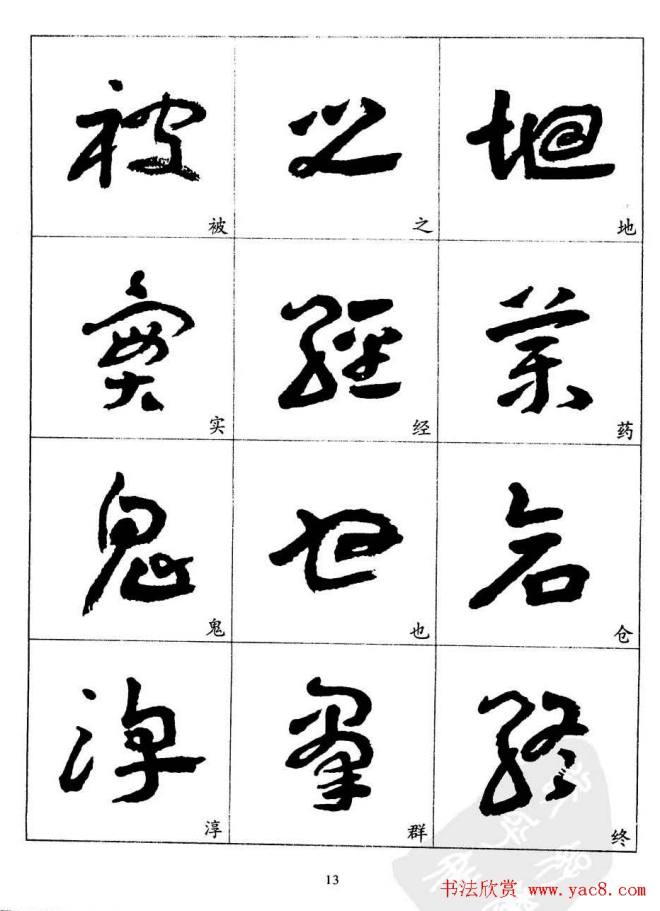 被 之 地
被 之 地
实 经 药
实 经 药
鬼 也 仓
鬼 也 仓
淳 群 终
淳 群 终
13
书法欣赏 www.yac8.com